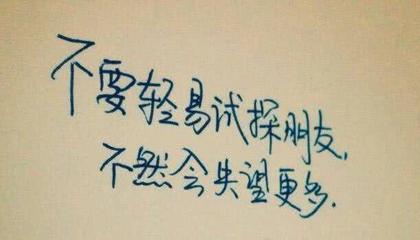 不要轻易试探朋友,
不然会失望更多.